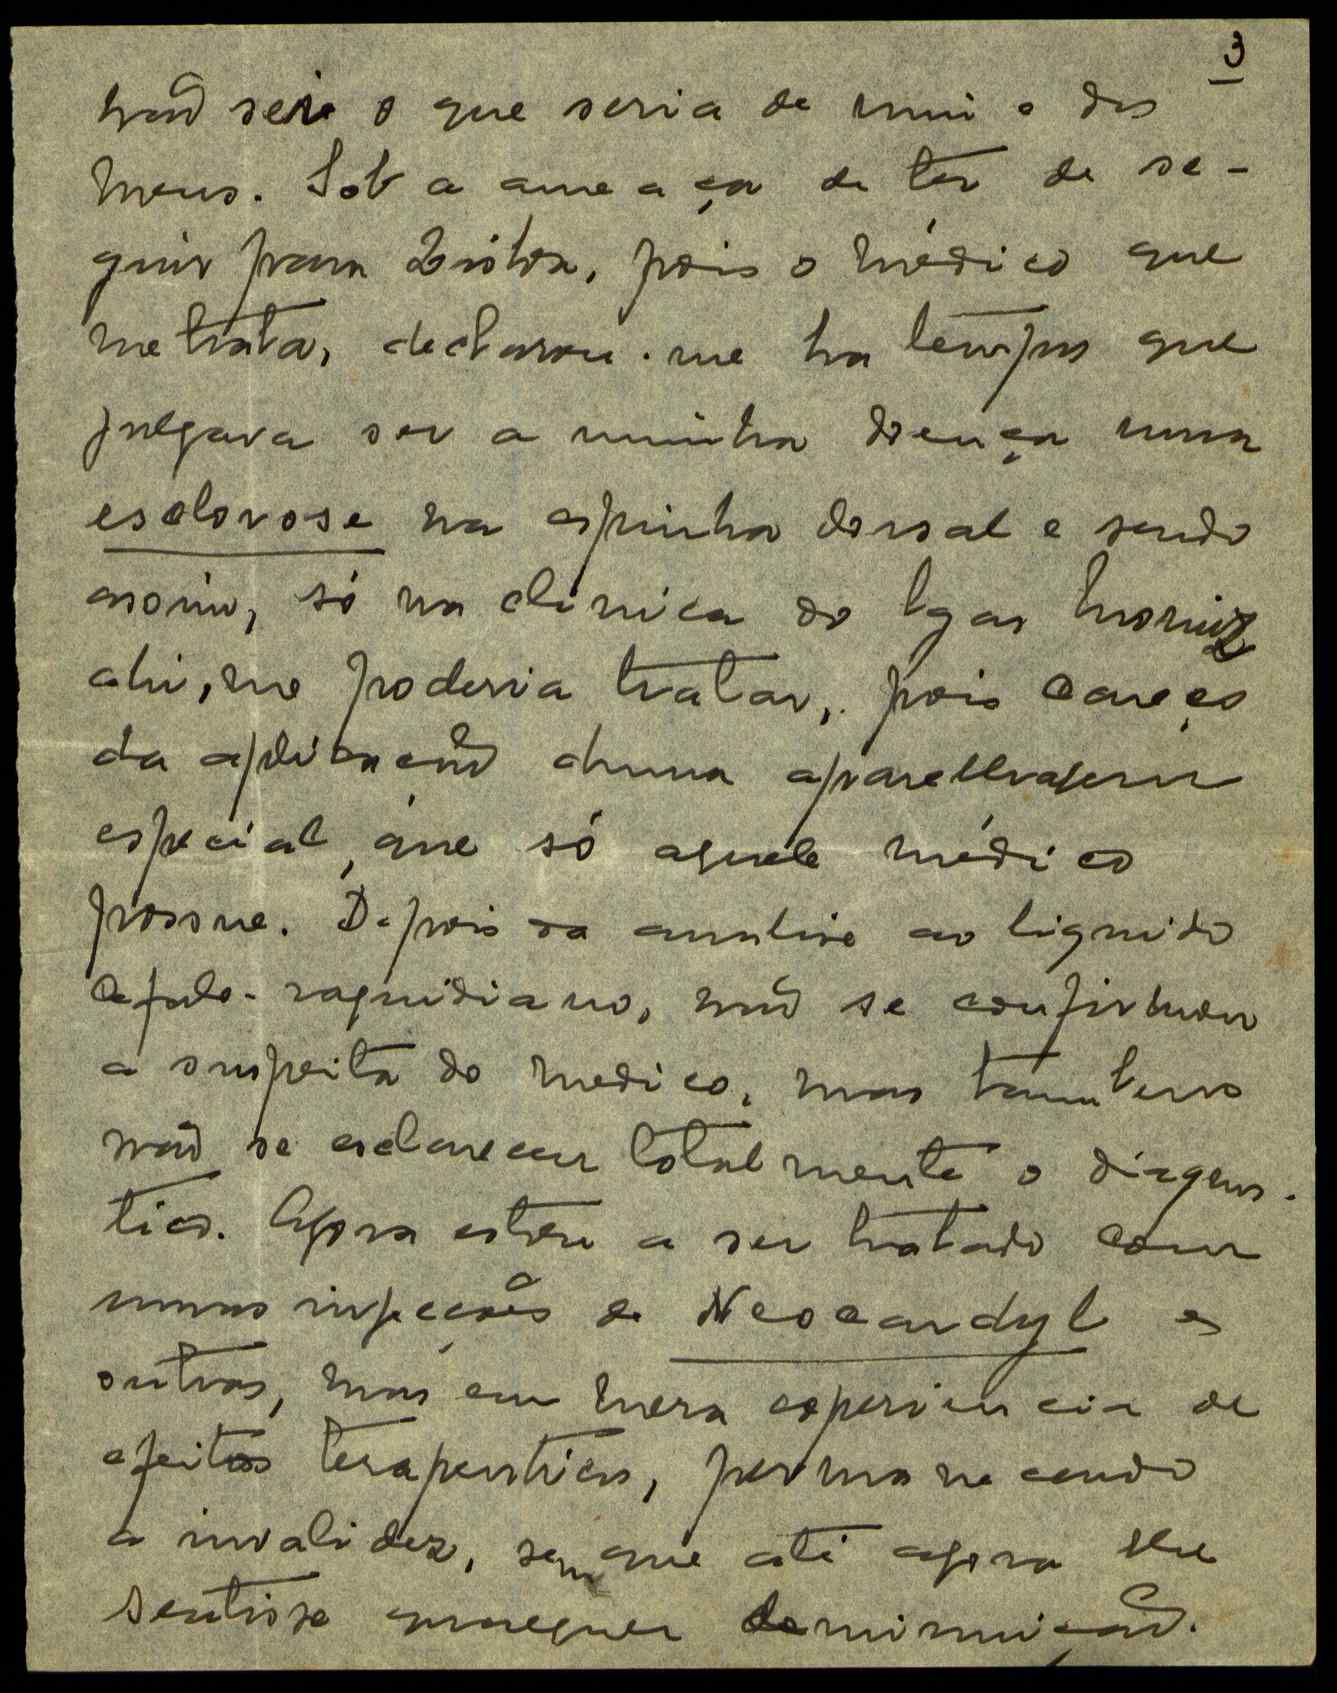 3
não sei o que seria de mim e dos
meus. Sob a ameaça de ter de se-
guir para Lisboa, pois o médico que
me trata, declarou-me ha tempos que
julgava ser a minha doença uma
esclorose na espinha dorsal e sendo
assim, só na clinica do Egas Moniz
ahi, me poderia tratar, pois careço
da aplicação duma aparelhagem
especial, que só aquele médico
possue. Depois da analise ao liquido
cefalo-raquidiano, não se confirmou
a suspeita do medico, mas tambem
não se esclareceu totalmente o diagnos-
tico. Agora estou a ser tratado com
umas injecções de Neocardyl e
outras, mas em mera experiencia de
efeitos terapeuticos, permanecendo
a invalidez, sem que até agora lhe
sentisse qualquer deminuição.